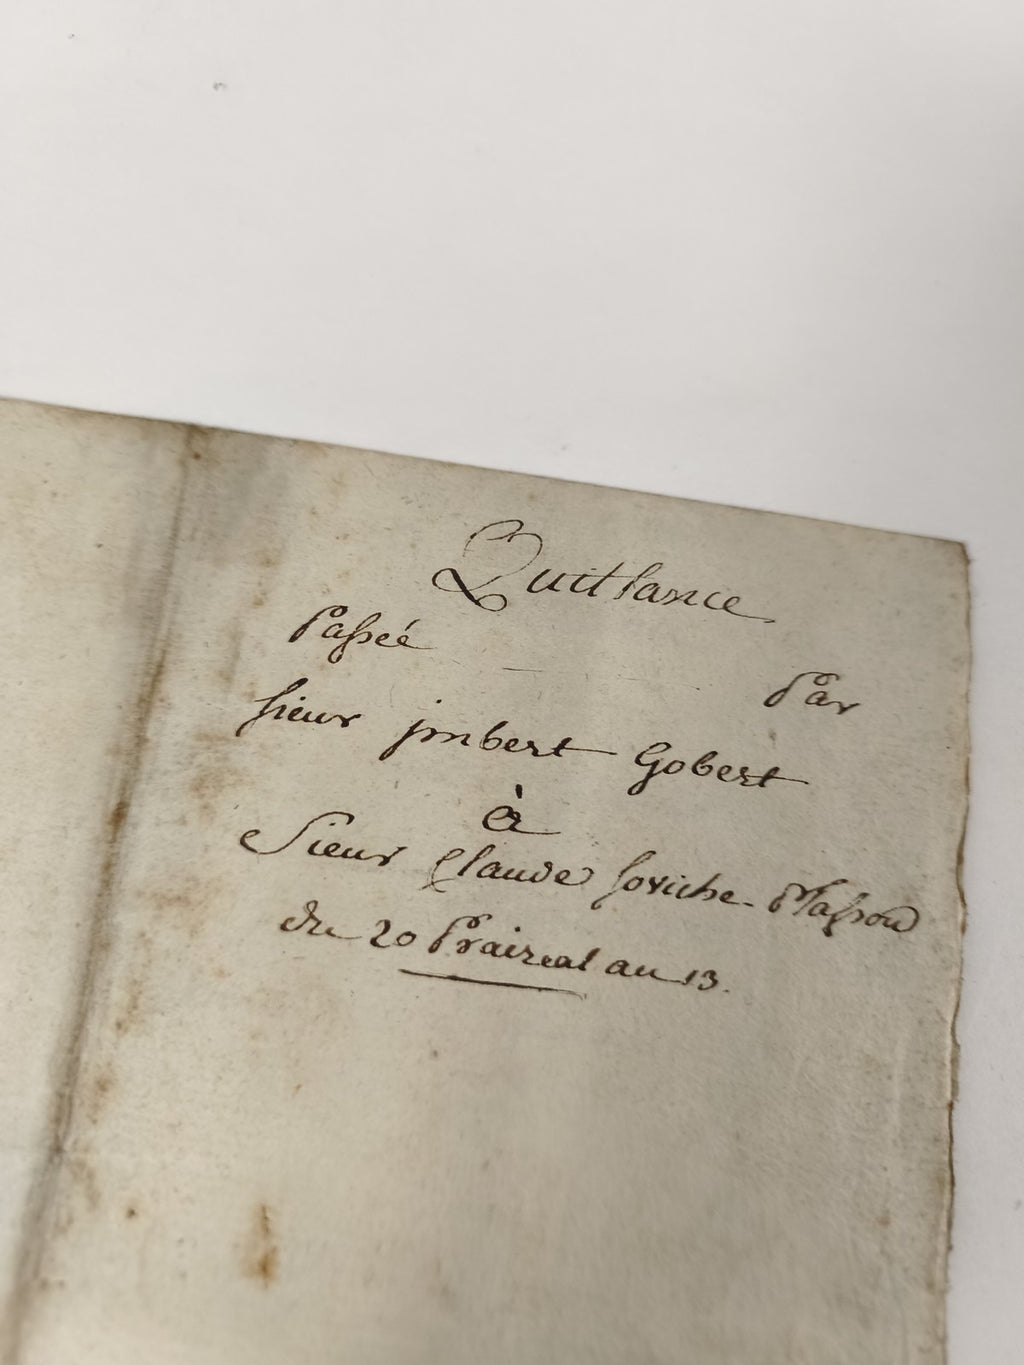 Quittance
Passeé Par
sieur jmbert Gobert
à
Sieur Claude soriche Masson
du 20 Prairéal an 13.